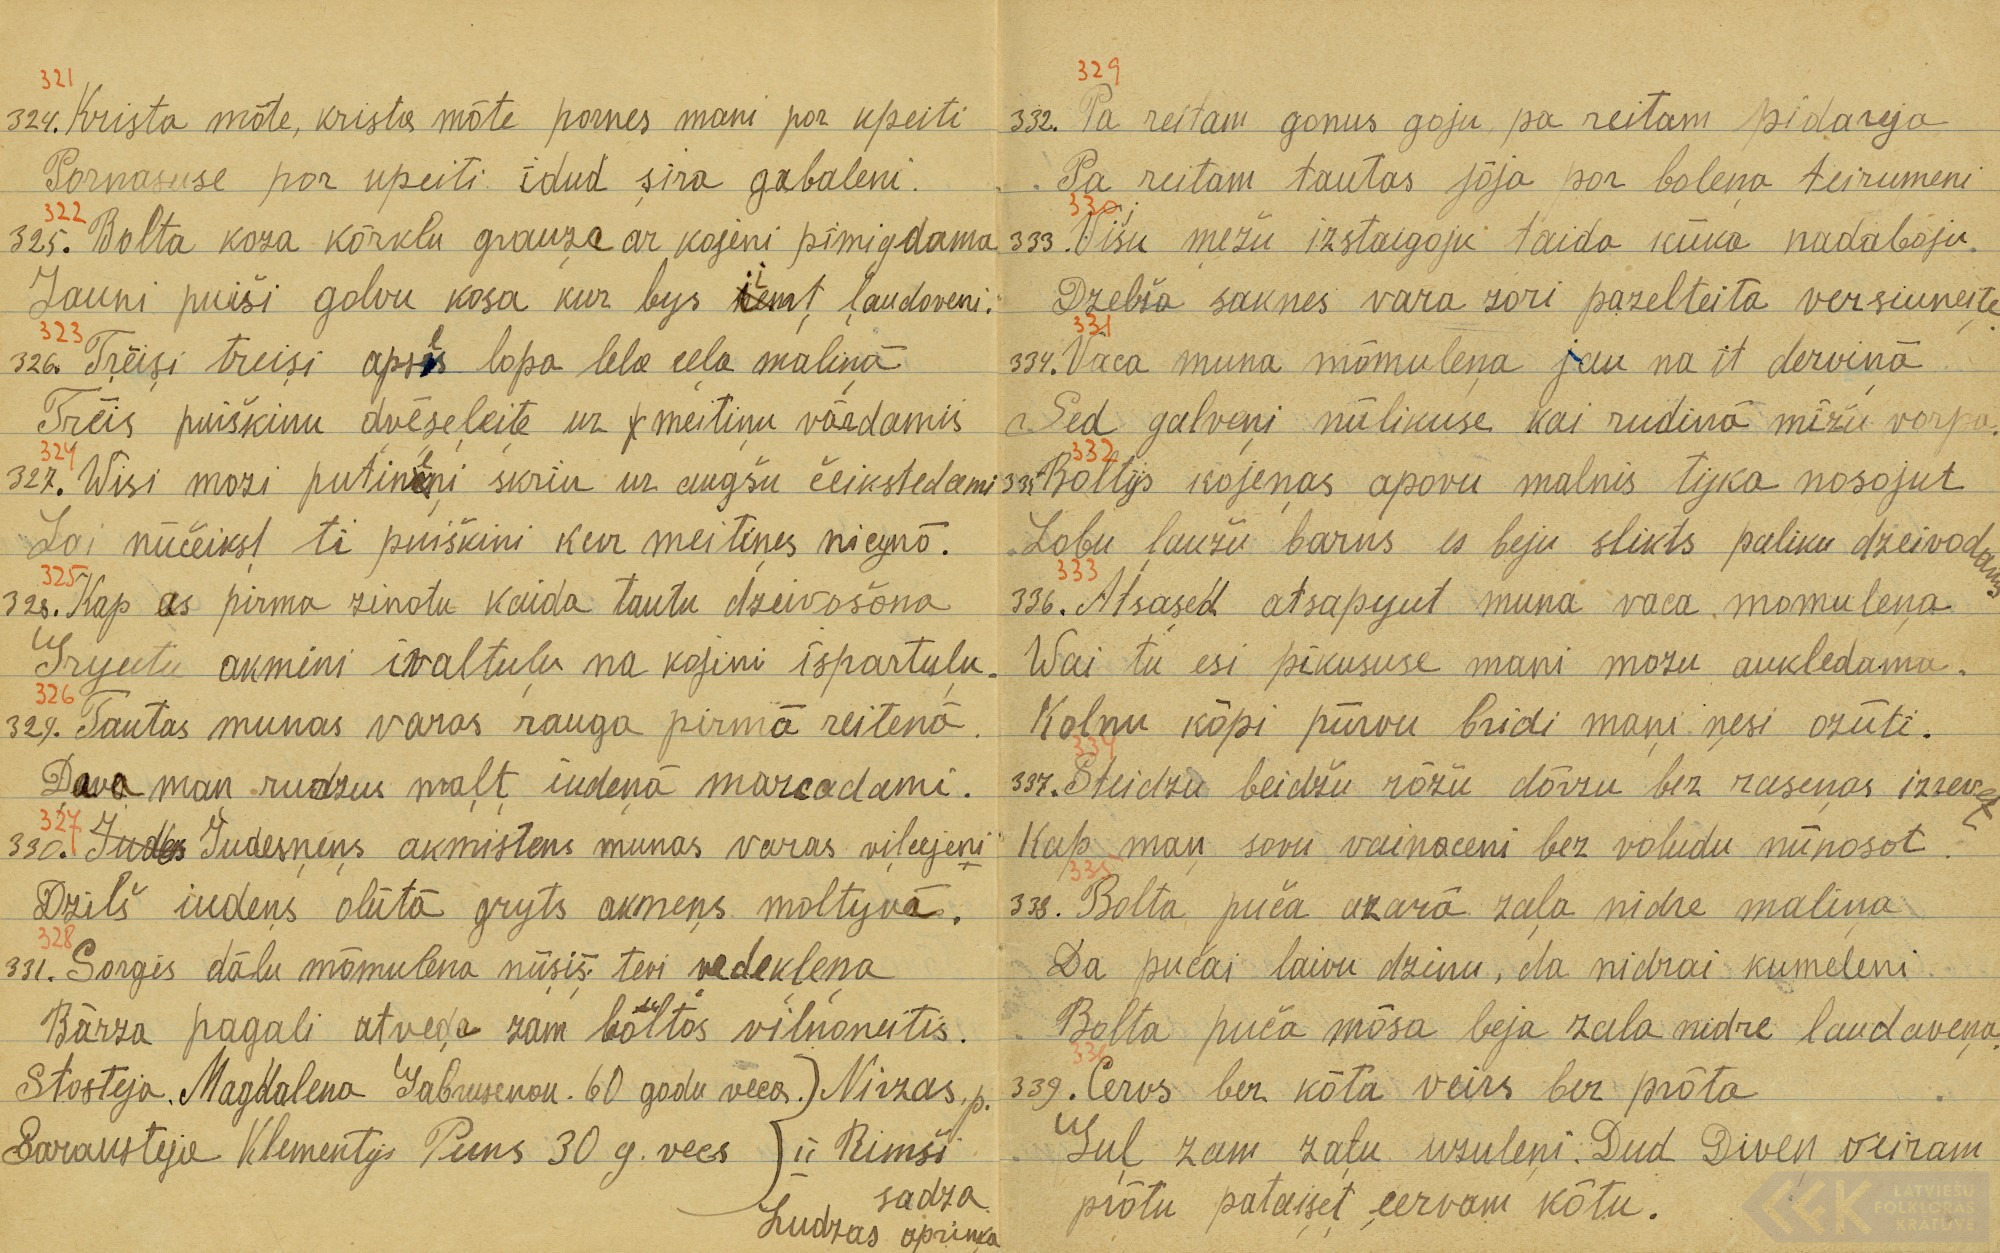 321
324. Krista mōte, krista mōte pornes mani por upeiti
Pornasuse por upeiti īdud șira gabaleni.
322
325. Bolta koza kōrklu grauza ar kojeni pīmigdama
Jauni puiši golvu kosa kur bys jemț ļaudoveni.
323
326. Trēiși treiși apșes lopa lela ceļa maliņā
Trēis puiškinu dvēșeļeite uz meitiņu vārdamis
324
327. Wisi mozi putineņi skrin uz augšu čeikstedami
Loi nūčeikst ti puiškini kur meitiņes nicynō.
325
328. Kap es pirma zinotu kaida tautu dzeivošōna
Gryutu akmini īvaltuļu na kojini īspartuļu.
326
329. Tautas munas varas rauga pirmā reitenā.
Dava maņ rudzus maļț iudeņā marcadami.
327
330. Iudesņeņs akmistens munas varas viļcejeņi
Dziļš iudeņs olūtā gryts akmeņs moltyvā.
328
331. Sorgēs dālu mōmuleņa nūșiș tevi vedekļeņa
Bārza pagali atveda zam boltōs vilnoneitis.
Stosteja. Magdalena Gabrusenou. 60 godu veca.) Nirzas, p.
Saraksteja Klementijs Puns 30 g. vecs } ii Rimši
sadza
Ludzas apriņķa
329
332. Pa reitam gonus goju, pa reitam pīdareja
Pa reitam tautas jōja por boleņa teirumeni
330
333. Višu mežu izstaigoju taida kūka nadaboju.
Dzelža saknes vara zori pazelteita versiuneite.
331
334. Vaca muna mōmuleņa jau na īt dervinā
Sed galveņi nūlikuse kai rudinā mīžū vorpa.
332
335. Boltys kojeņas apovu malnis tyka nosojut
Lobu ļaužu barns es beju slikts paliku dzeivodams
333
336. Atsașed atsapyut muna vaca momuleņa
Wai tu esi pīkususe mani mozu aukledama.
Kolnu kōpi pūrvu bridi mani nesi ozūti.
334
337. Steidzu beidžu rōžu dōrzu bez raseņas izrevet
Kap maņ sovu vainaceni bez voludu nūnosot.
335
338. Bolta puča azarā zaļa nidre maliņa
Da pučai laivu dzinu, da nidrai kumeleni
Bolta puča mōsa beja zala nidre laudaveņa.
336
339. Cervs bez kōta veirs bez prōta
Guļ zam zaļu uzuleņi. Dud Diveņ veiram
prōtu pataișeț cervam kōtu.
LATVIEŠU
FOLKLORAS
KRĀTUVE